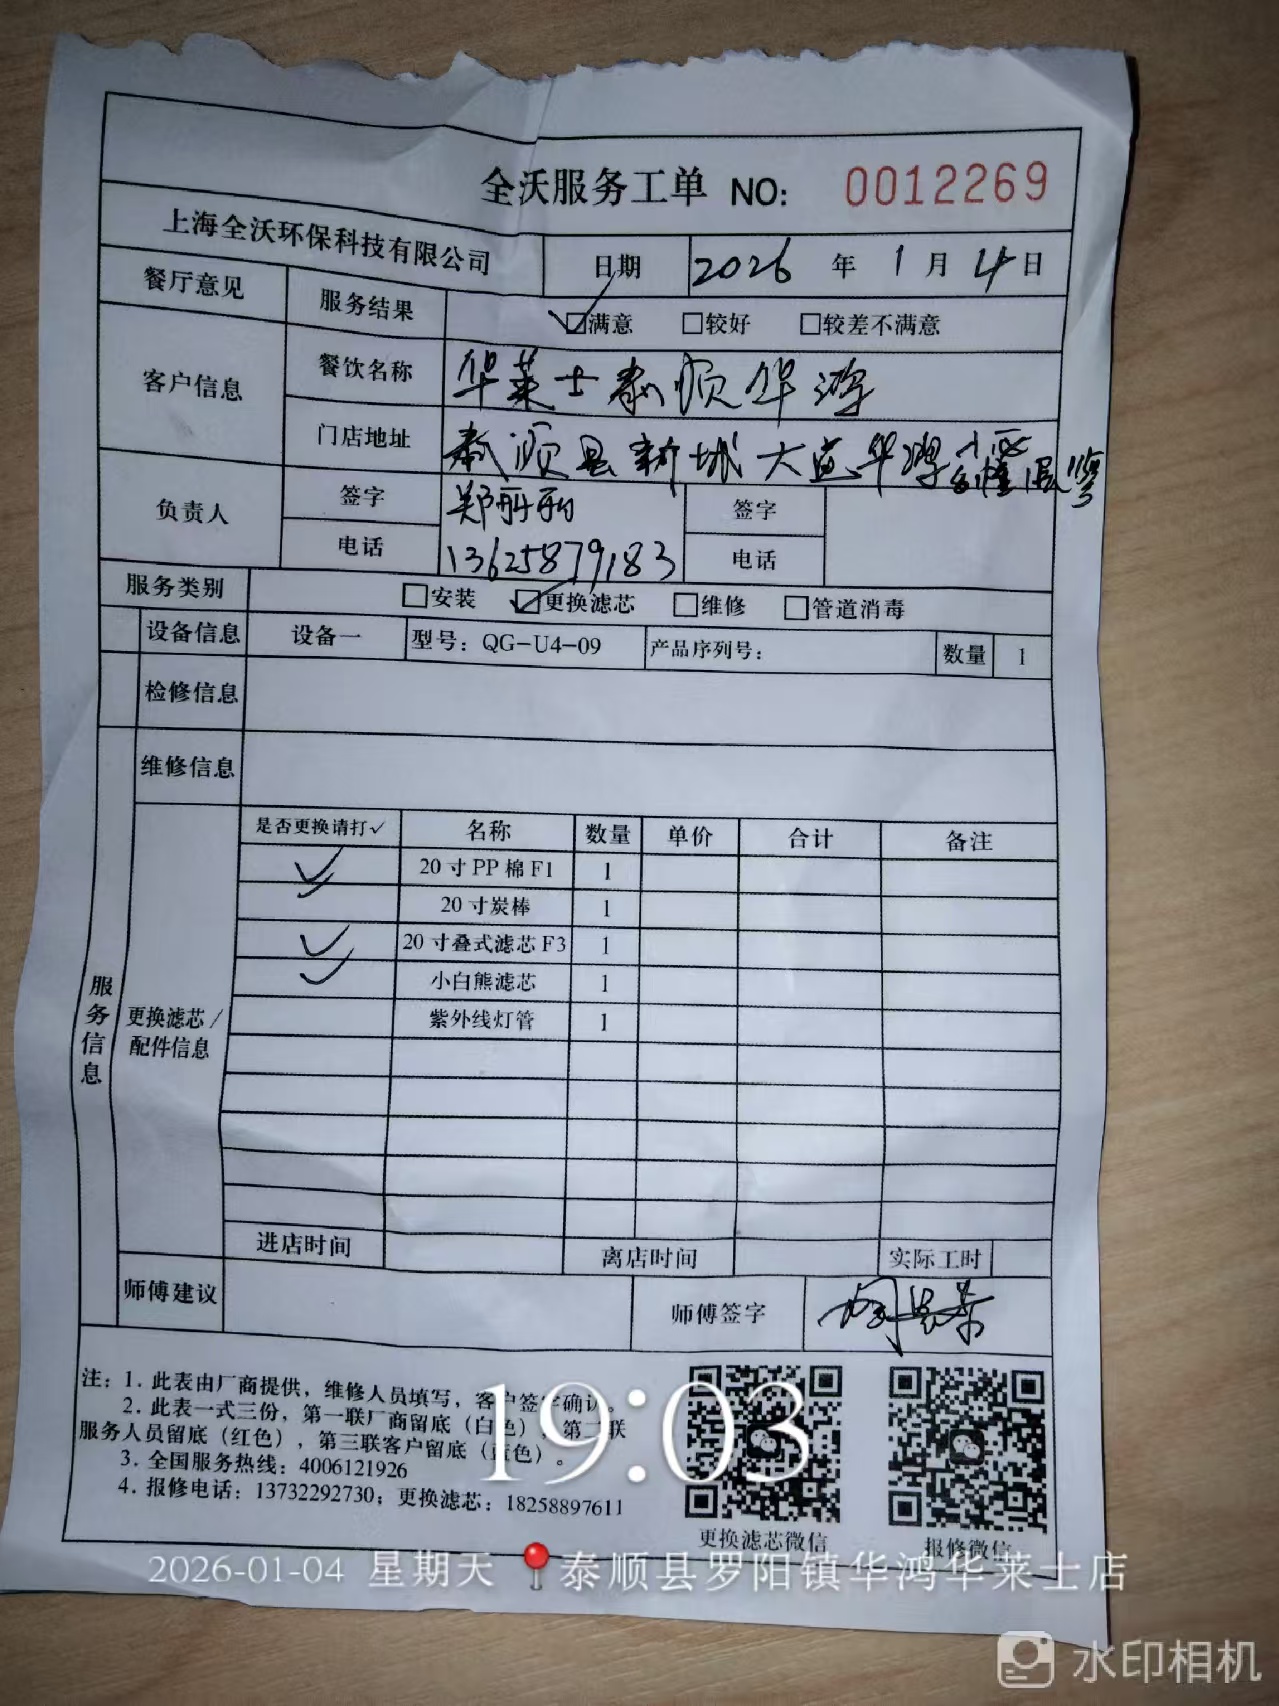 全沃服务工单 NO: 0012269
上海全沃环保科技有限公司 日期 2026 年 1 月 4 日
餐厅意见 服务结果 ☑满意 □较好 □较差不满意
客户信息 餐饮名称 华莱士泰顺华鸿
门店地址 泰顺县新城大道华鸿
负责人 签字 郑丽丽 签字
电话 13625879183 电话
服务类别 □安装 ☑更换滤芯 □维修 □管道消毒
设备信息 设备一 型号：QG-U4-09 产品序列号： 数量 1
检修信息
维修信息
服务信息
更换滤芯/配件信息
是否更换请打✓ 名称 数量 单价 合计 备注
✓ 20寸PP棉F1 1
✓ 20寸炭棒 1
✓ 20寸叠式滤芯F3 1
✓ 小白熊滤芯 1
紫外线灯管 1
进店时间 离店时间 实际工时
师傅建议 师傅签字
注：1. 此表由厂商提供，维修人员填写，客户签字确认。
2. 此表一式三份，第一联厂商留底（白色），第二联
服务人员留底（红色），第三联客户留底（蓝色）。
3. 全国服务热线：4006121926
4. 报修电话：13732292730；更换滤芯：18258897611
更换滤芯微信 报修微信
19:03
2026-01-04 星期天 泰顺县罗阳镇华鸿华莱士店
水印相机